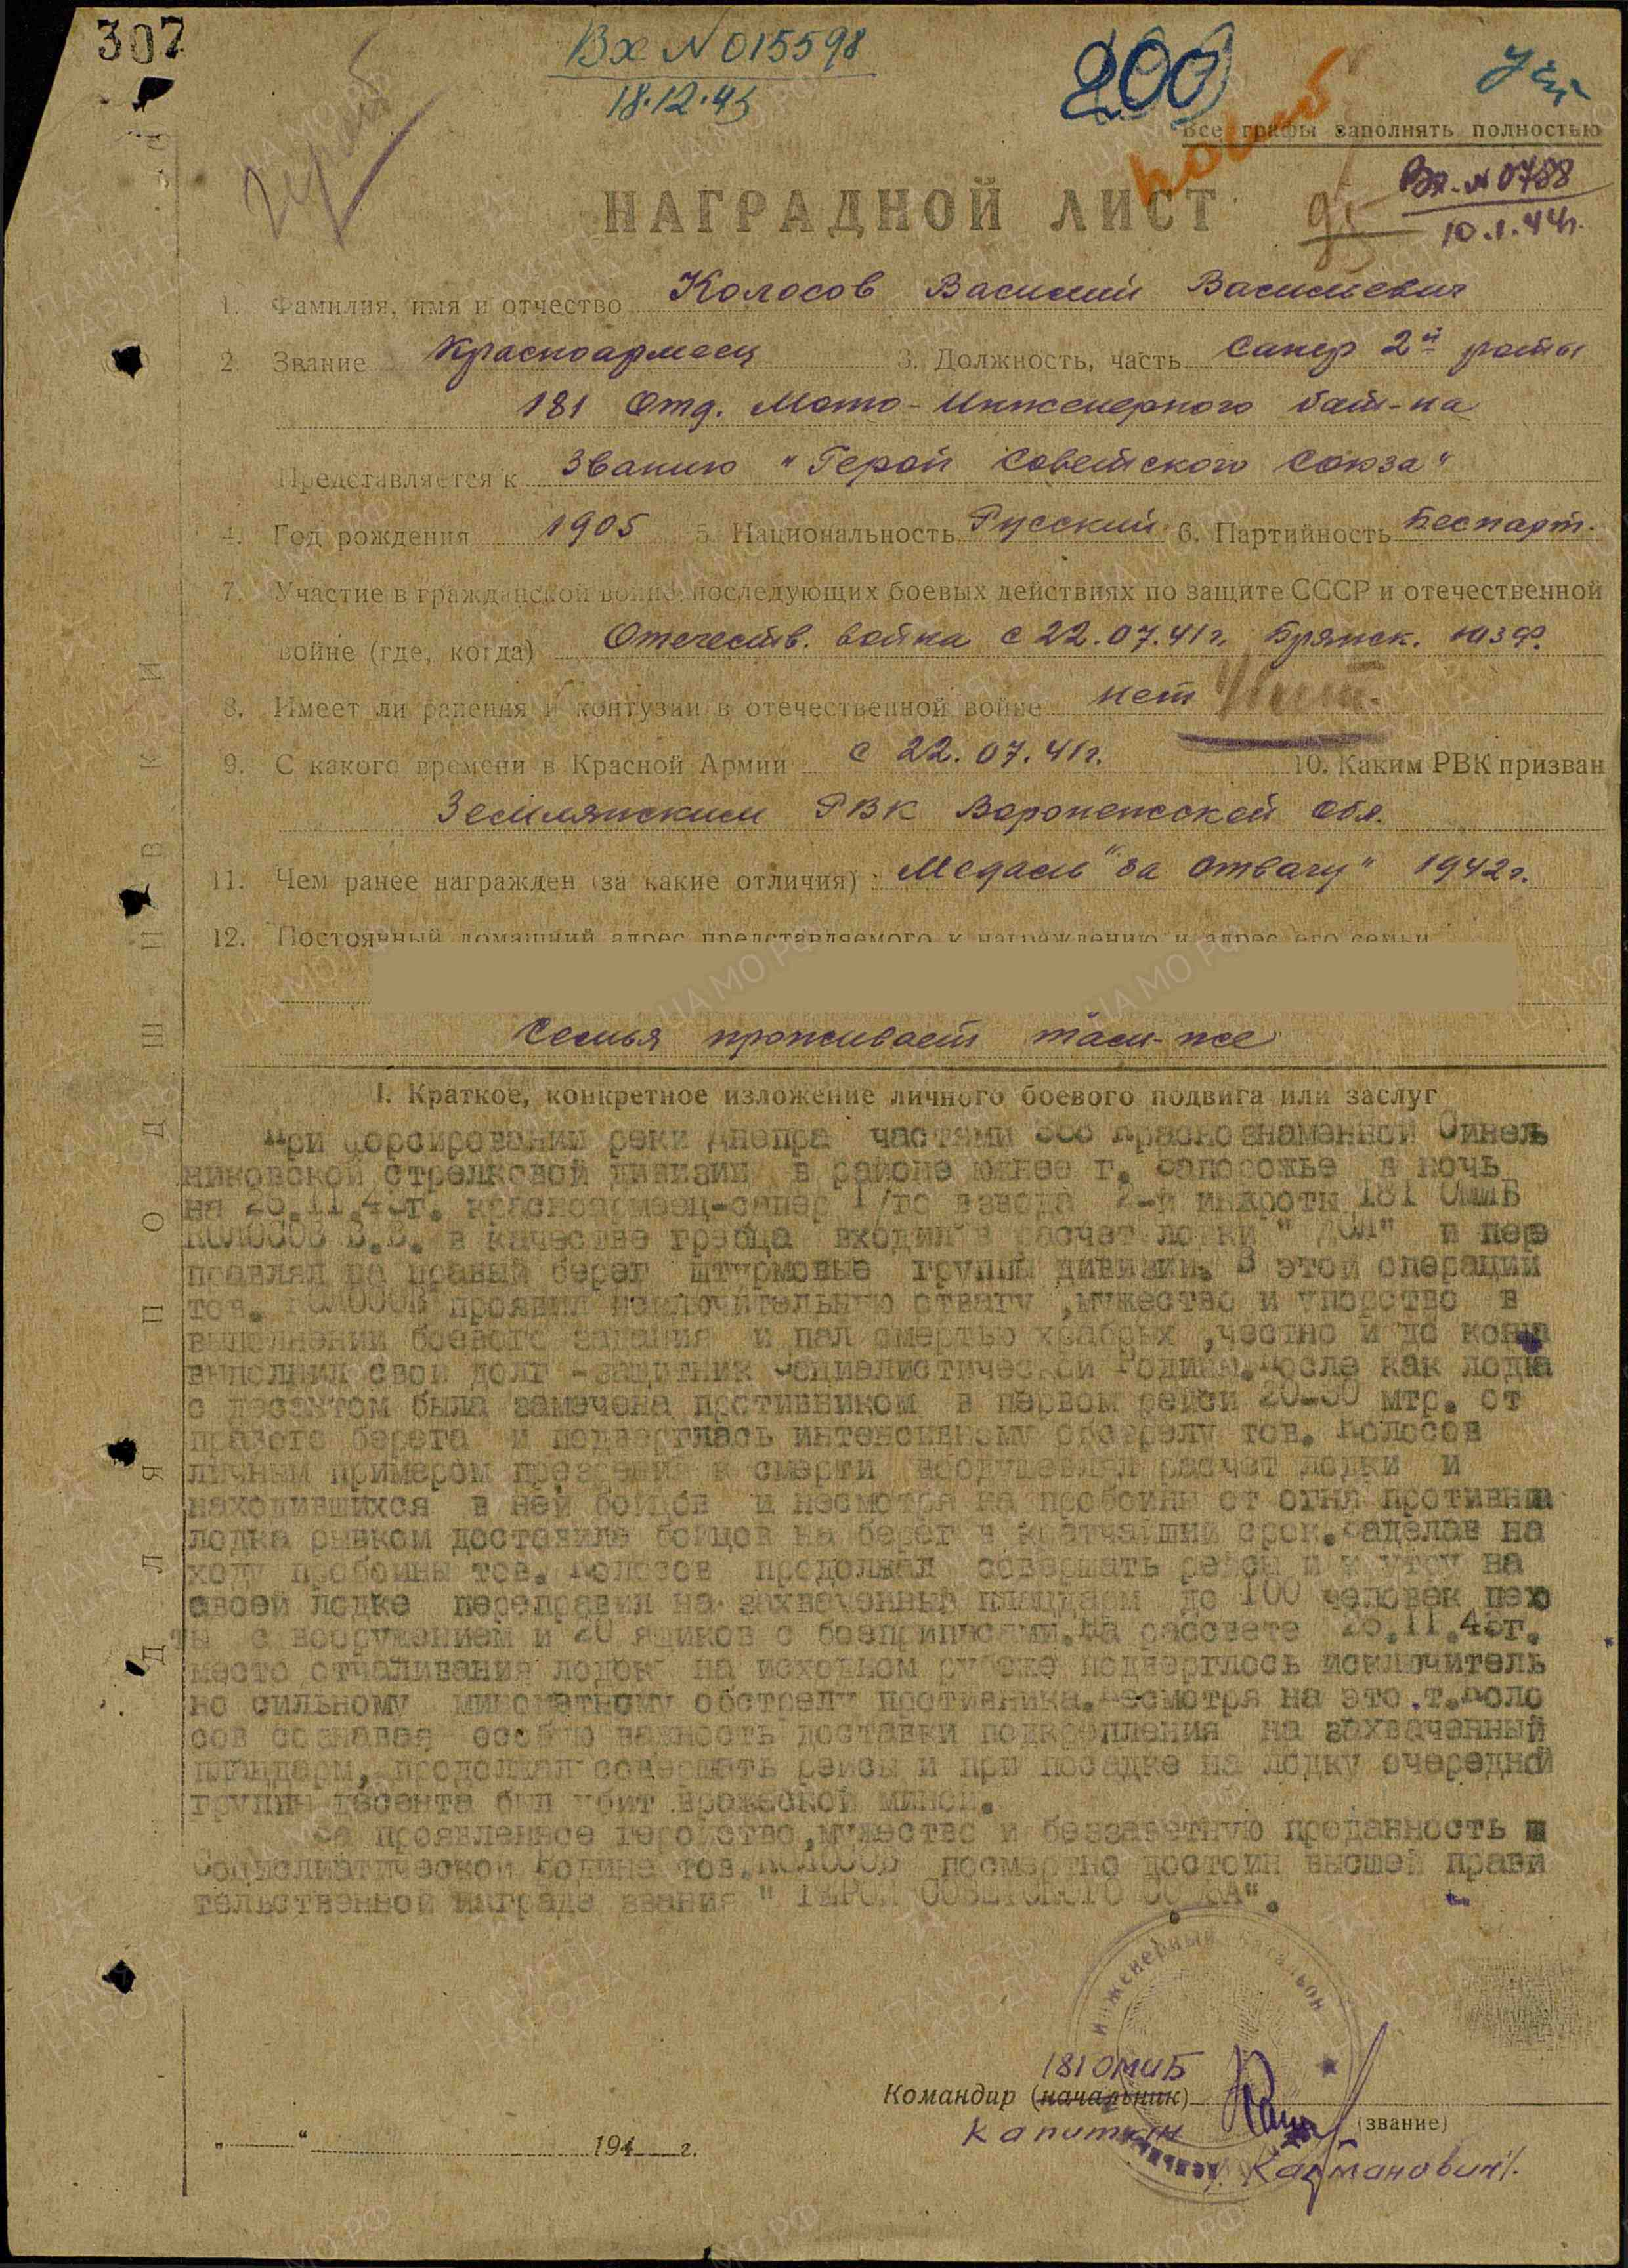 307
Вх N 015598
18.12.43
200
Все графы заполнять полностью
Вх. N 0788
10.1.44г.
95
НАГРАДНОЙ ЛИСТ
1. Фамилия, имя и отчество Колосов Василий Васильевич
2. Звание Красноармеец 3. Должность, часть Сапер 2й роты
181 Отд. Мото-Инженерного бат-на
Представляется к Званию "Герой Советского Союза"
4. Год рождения 1905 5. Национальность Русский 6. Партийность Беспарт.
7. Участие в гражданской войне, последующих боевых действиях по защите СССР и отечественной
войне (где, когда) Отечеств. война с 22.07.41г. Брянск. ЮЗФ.
8. Имеет ли ранения и контузии в отечественной войне нет
9. С какого времени в Красной Армии с 22.07.41г. 10. Каким РВК призван
Землянским РВК Воронежской обл.
11. Чем ранее награжден (за какие отличия) Медаль "за Отвагу" 1942г.
12. Постоянный домашний адрес представляемого к награждению и адрес его семьи
Семья проживает там-же
ДЛЯ ПОДШИВКИ
I. Краткое, конкретное изложение личного боевого подвига или заслуг
При форсировании реки Днепра частями Краснознаменной Синель
никовской стрелковой дивизии в районе южнее г. Запорожье в ночь
на 26.11.43г. красноармеец-сапер 1/го взвода 2-й инжроты 181 ОМИБ
КОЛОСОВ В.В. в качестве гребца входил в расчет лодки " ДСЛ" и пере
правлял на правый берег штурмовые группы дивизии. В этой операции
тов. КОЛОСОВ проявил исключительную отвагу ,мужество и упорство в
выполнении боевого задания и пал смертью храбрых ,честно и до конца
выполнил свой долг -защитник Социалистической Родины.После как лодка
с десантом была замечена противником в первом рейси 20-30 мтр. от
правого берега и подверглась интенсивному обстрелу тов. Колосов
личным примером презрения к смерти воодушевлял расчет лодки и
находившихся в ней бойцов и несмотря на пробоины от огня противника
лодка рывком доставила бойцов на берег в кратчайший срок.Заделав на
ходу пробоины тов. Колосов продолжал совершать рейсы и к утру на
своей лодке переправил на захваченный плацдарм до 100 человек пехо
ты с вооружением и 20 ящиков с боеприпасами.На рассвете 26.11.43г.
место отчаливания лодок на исходном рубеже подверглось исключитель
но сильному минометному обстрелу противника.Несмотря на это .т.Коло
сов сознавая особую важность доставки подкрепления на захваченный
плацдарм, продолжал совершать рейсы и при посадке на лодку очередной
группы десанта был убит вражеской миной.
За проявленное геройство,мужество и беззаветную преданность
Социалистической Родине тов.КОЛОСОВ посмертно достоин высшей прави
тельственной награде звания " ГЕРОЙ СОВЕТСКОГО СОЮЗА".
инженерный батальон
181 ОМИБ
Командир (начальник)
Капитан (звание)
Картманович
"___" 194 г.